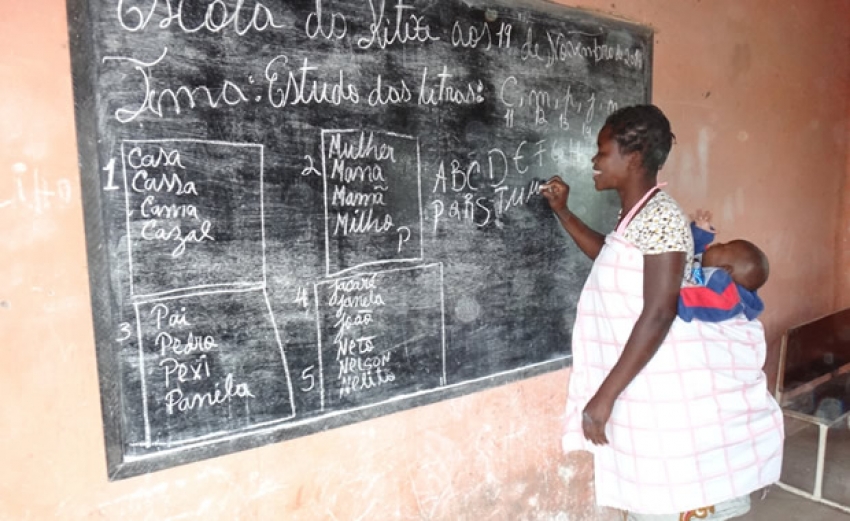 Escola do Kitixe aos 19 de Novembro de
Tema: Estudo das letras: C, m, p, j, n
11 12 13 14
1
Casa
Cassa
Cama
Cazal
2
Mulher
Mana
Mamã
Milho
P
A B C D E F G H
P Q R S T U V
3
Pai
Pedro
Pexi
Panela
4
Jacaré
Janela
João
5
Neto
Nelson
Nelito